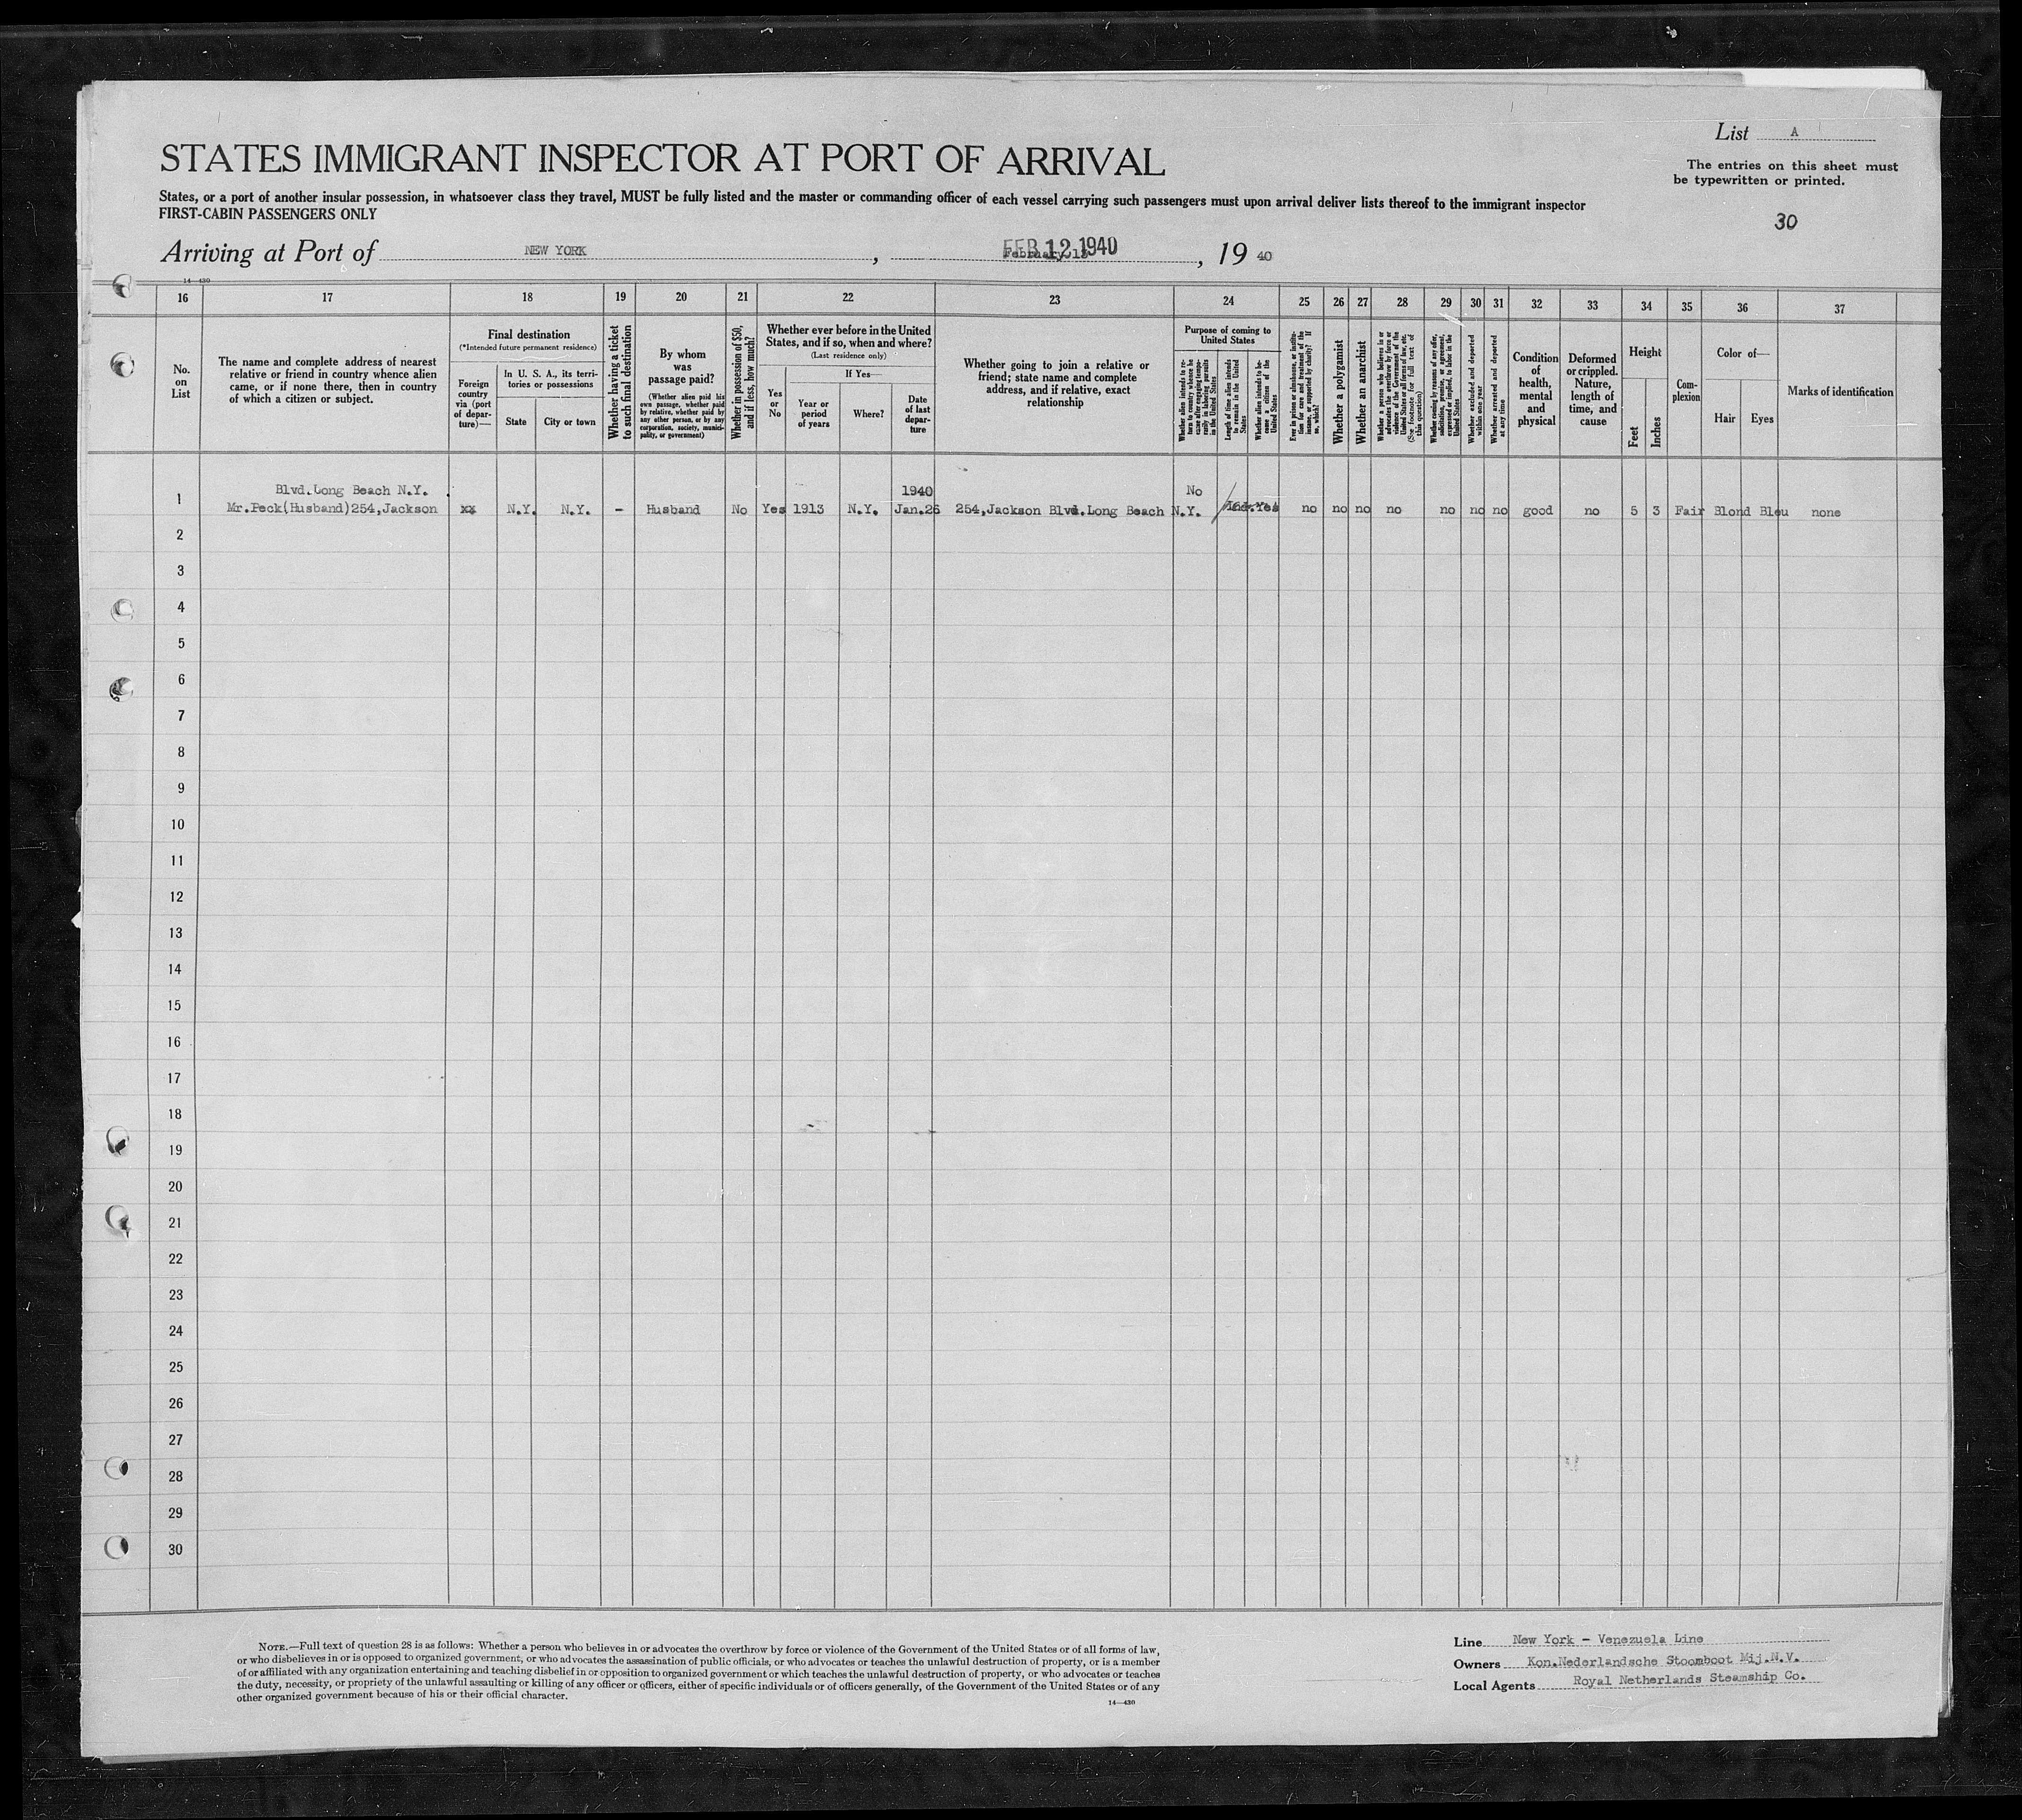 List A
STATES IMMIGRANT INSPECTOR AT PORT OF ARRIVAL
The entries on this sheet must
be typewritten or printed.
States, or a port of another insular possession, in whatsoever class they travel, MUST be fully listed and the master or commanding officer of each vessel carrying such passengers must upon arrival deliver lists thereof to the immigrant inspector
FIRST-CABIN PASSENGERS ONLY
30
Arriving at Port of NEW YORK, FEB 12 1940, 19 40
14—430
16 17 18 19 20 21 22 23 24 25 26 27 28 29 30 31 32 33 34 35 36 37
No.
on
List
The name and complete address of nearest
relative or friend in country whence alien
came, or if none there, then in country
of which a citizen or subject.
Final destination
(*Intended future permanent residence)
Foreign
country
via (port
of depar-
ture)—
In U. S. A., its terri-
tories or possessions
State
City or town
Whether having a ticket
to such final destination
By whom
was
passage paid?
(Whether alien paid his
own passage, whether paid
by relative, whether paid by
any other person, or by any
corporation, society, munici-
pality, or government)
Whether in possession of $50,
and if less, how much?
Whether ever before in the United
States, and if so, when and where?
(Last residence only)
Yes
or
No
If Yes—
Year or
period
of years
Where?
Date
of last
depar-
ture
Whether going to join a relative or
friend; state name and complete
address, and if relative, exact
relationship
Purpose of coming to
United States
Whether alien intends to re-
turn to country whence he
came after engaging tempo-
rarily in laboring pursuits
in the United States
Length of time alien intends
to remain in the United
States
Whether alien intends to be-
come a citizen of the
United States
Ever in prison or almshouse, or institu-
tion for care and treatment of the
insane, or supported by charity? If
so, which?
Whether a polygamist
Whether an anarchist
Whether a person who believes in or
advocates the overthrow by force or
violence of the Government of the
United States or all forms of law, etc.
(See footnote for full text of
this question)
Whether coming by reasons of any offer,
solicitation, promise, or agreement,
expressed or implied, to labor in the
United States
Whether excluded and deported
within one year
Whether arrested and deported
at any time
Condition
of
health,
mental
and
physical
Deformed
or crippled.
Nature,
length of
time, and
cause
Height
Feet
Inches
Com-
plexion
Color of—
Hair
Eyes
Marks of identification
Blvd.Long Beach N.Y. 1940 No
1 Mr.Peck(Husband)254,Jackson xx N.Y. N.Y. - Husband No Yes 1913 N.Y. Jan.26 254,Jackson Blvd.Long Beach N.Y. Yes no no no no no no no good no 5 3 Fair Blond Bleu none
2
3
4
5
6
7
8
9
10
11
12
13
14
15
16
17
18
19
20
21
22
23
24
25
26
27
28
29
30
NOTE.—Full text of question 28 is as follows: Whether a person who believes in or advocates the overthrow by force or violence of the Government of the United States or of all forms of law,
or who disbelieves in or is opposed to organized government, or who advocates the assassination of public officials, or who advocates or teaches the unlawful destruction of property, or is a member
of or affiliated with any organization entertaining and teaching disbelief in or opposition to organized government or which teaches the unlawful destruction of property, or who advocates or teaches
the duty, necessity, or propriety of the unlawful assaulting or killing of any officer or officers, either of specific individuals or of officers generally, of the Government of the United States or of any
other organized government because of his or their official character.
14—430
Line New York - Venezuela Line
Owners Kon.Nederlandsche Stoomboot Mij.N.V.
Local Agents Royal Netherlands Steamship Co.